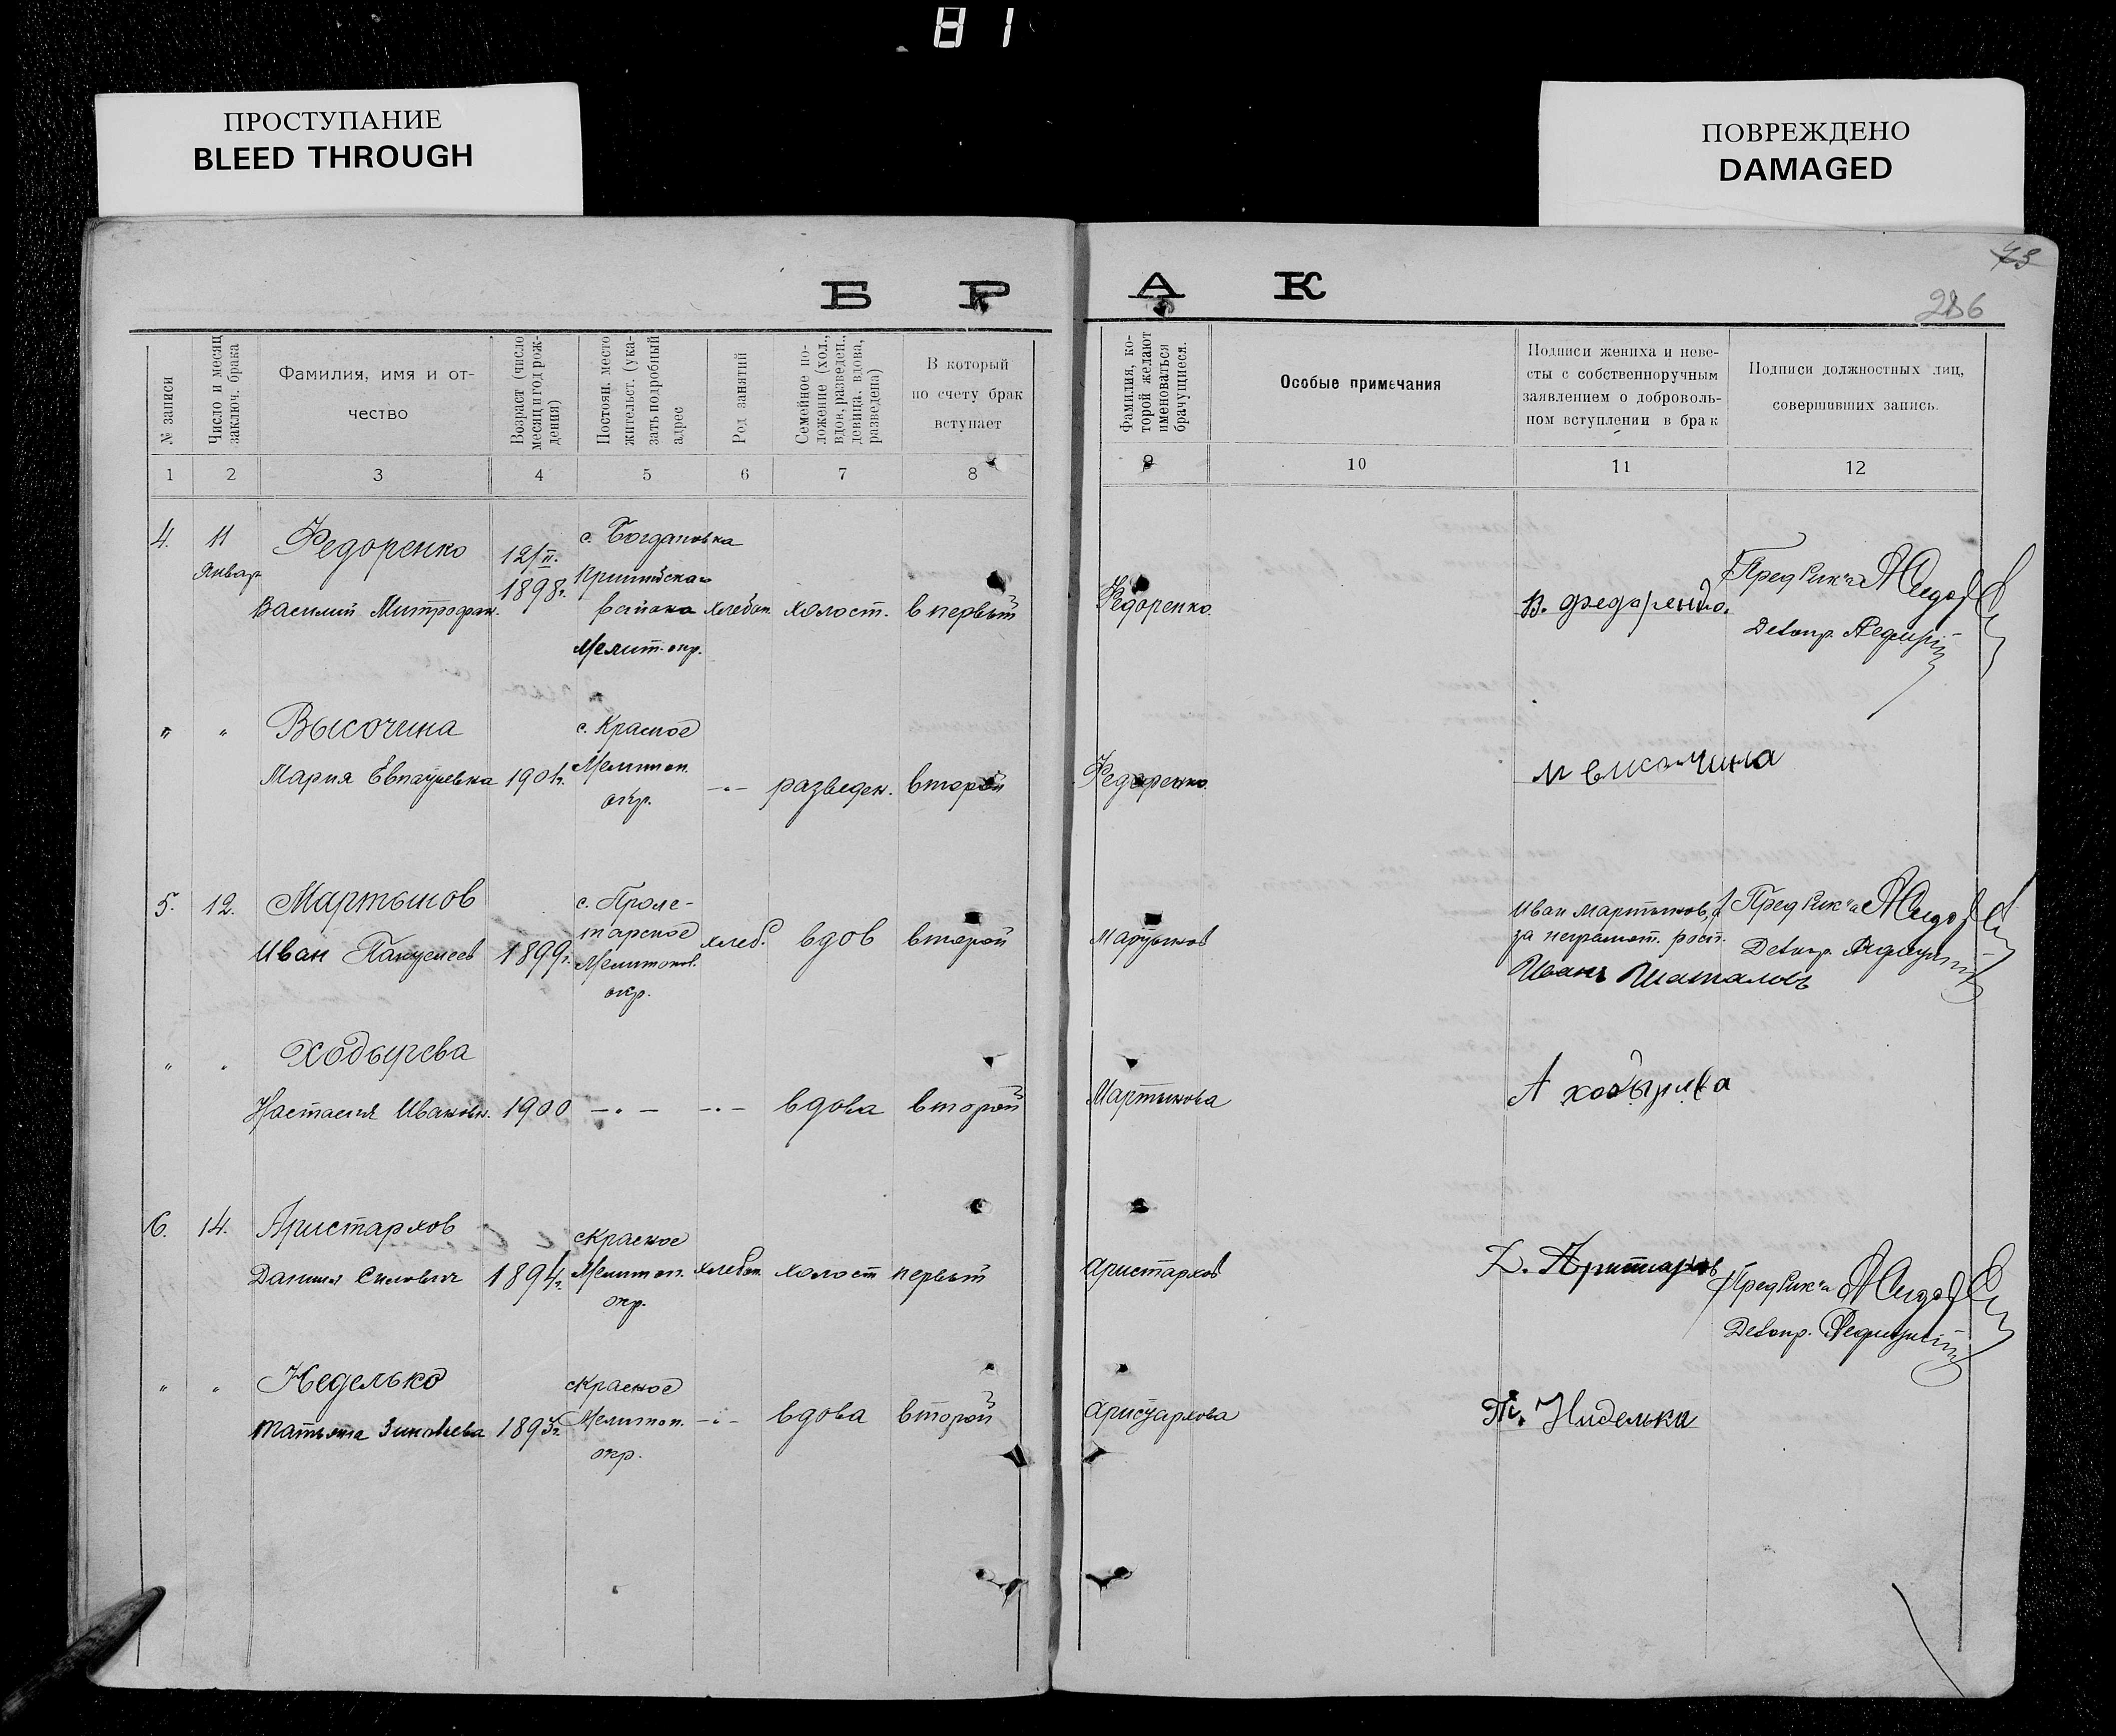 81
ПРОСТУПАНИЕ
BLEED THROUGH
ПОВРЕЖДЕНО
DAMAGED
73
286
Б Р А К
№ записи
Число и месяц
заключ. брака
Фамилия, имя и от-
чество
Возраст (число
месяц и год рож-
дения)
Постоян. место
жительст. (ука-
зать подробный
адрес
Род занятий
Семейное по-
ложение (хол.,
вдов, разведен.,
девица, вдова,
разведена)
В который
по счету брак
вступает
Фамилия, ко-
торой желают
именоваться
брачущиеся.
Особые примечания
Подписи жениха и неве-
сты с собственноручным
заявлением о доброволь-
ном вступлении в брак
Подписи должностных лиц,
совершивших запись.
1 2 3 4 5 6 7 8 9 10 11 12
4. 11
Январ
Федоренко
Василий Митрофан.
12/II.
1898г.
с. Богдановка
района
Мелит. окр.
хлебоп. холост. в первый
Федоренко
В. Федоренко.
Пред Рик'а
Делопр.
" " Высочина
Мария 1901г.
с. Красное
Мелитоп.
окр.
-"- разведен. второй
Федоренко
5. 12. Мартынов
Иван 1899г.
с. Проле-
тарское
Мелитопол.
окр.
хлеб. вдов второй
Мартынов
Иван Мартынов, а
за неграмот. росп.
Иван Шаталовъ
Пред Рик'а
Делопр.
" " Ходырева
Настасия Ивановн. 1900 -"- -"- вдова второй
Мартынова
А ходырева
6. 14. Аристархов
Даниил Силович 1894г.
с Красное
Мелитоп.
окр.
хлебоп холост первый
Аристархов
Д.
Пред Рик'а
Делопр.
" " Неделько
Татьяна Зиновьева 1893г.
с Красное
Мелитоп.
окр.
-"- вдова второй
Аристархова
Т. Ниделька